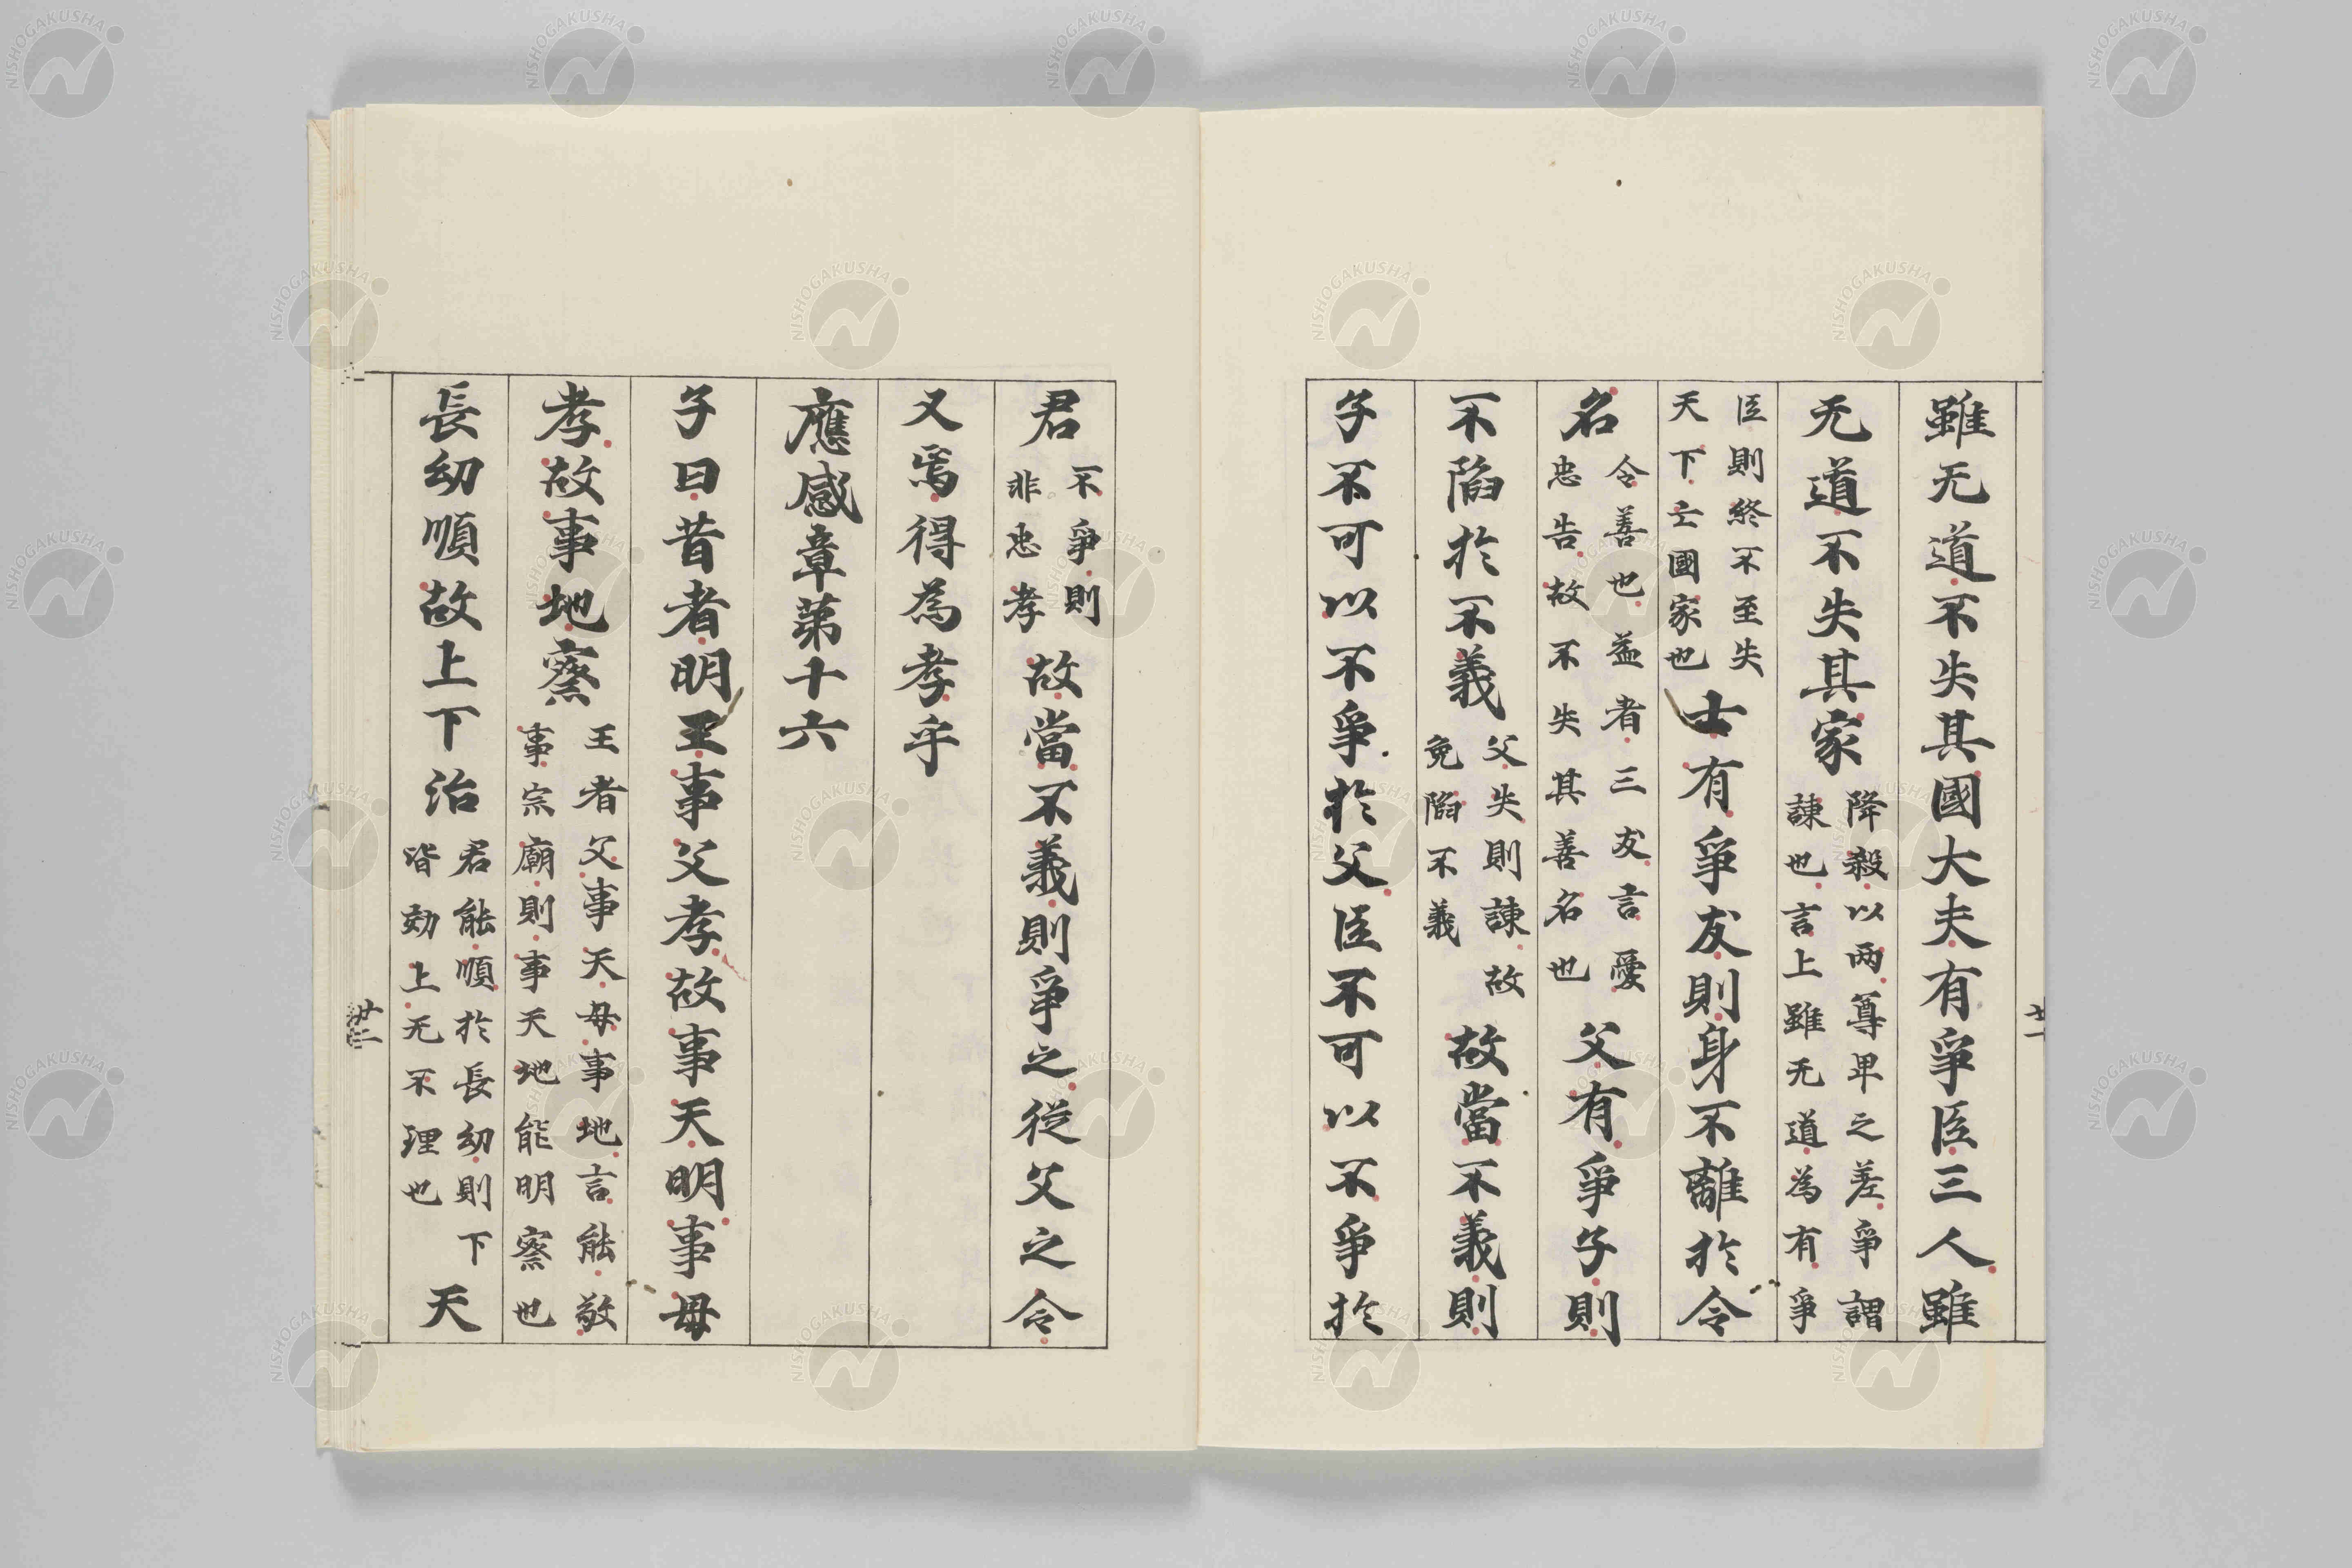 雖无道不失其國大夫有爭臣三人雖
无道不失其家
降殺以兩尊卑之差爭謂
諫也言上雖无道為有爭
臣則終不至失
天下亡國家也
士有爭友則身不離於令
名
令善也益者三友言愛
忠告故不失其善名也
父有爭子則
不陷於不義
父失則諫故
免陷不義
故當不義則
子不可以不爭於父臣不可以不爭於
君
不爭則
非忠孝
故當不義則爭之從父之令
又焉得為孝乎
應感章第十六
子曰昔者明王事父孝故事天明事母
孝故事地察
王者父事天母事地言能敬
事宗廟則事天地能明察也
長幼順故上下治
君能順於長幼則下
皆効上无不理也
天
廿一
廿二
NISHOGAKUSHA